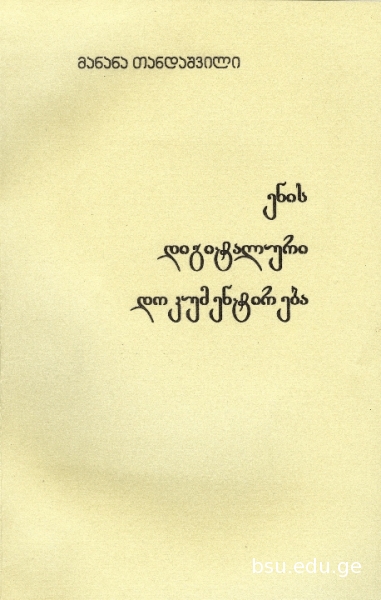 მანანა თანდაშვილი
ენის
დიგიტალური
დოკუმენტირება
bsu.edu.ge